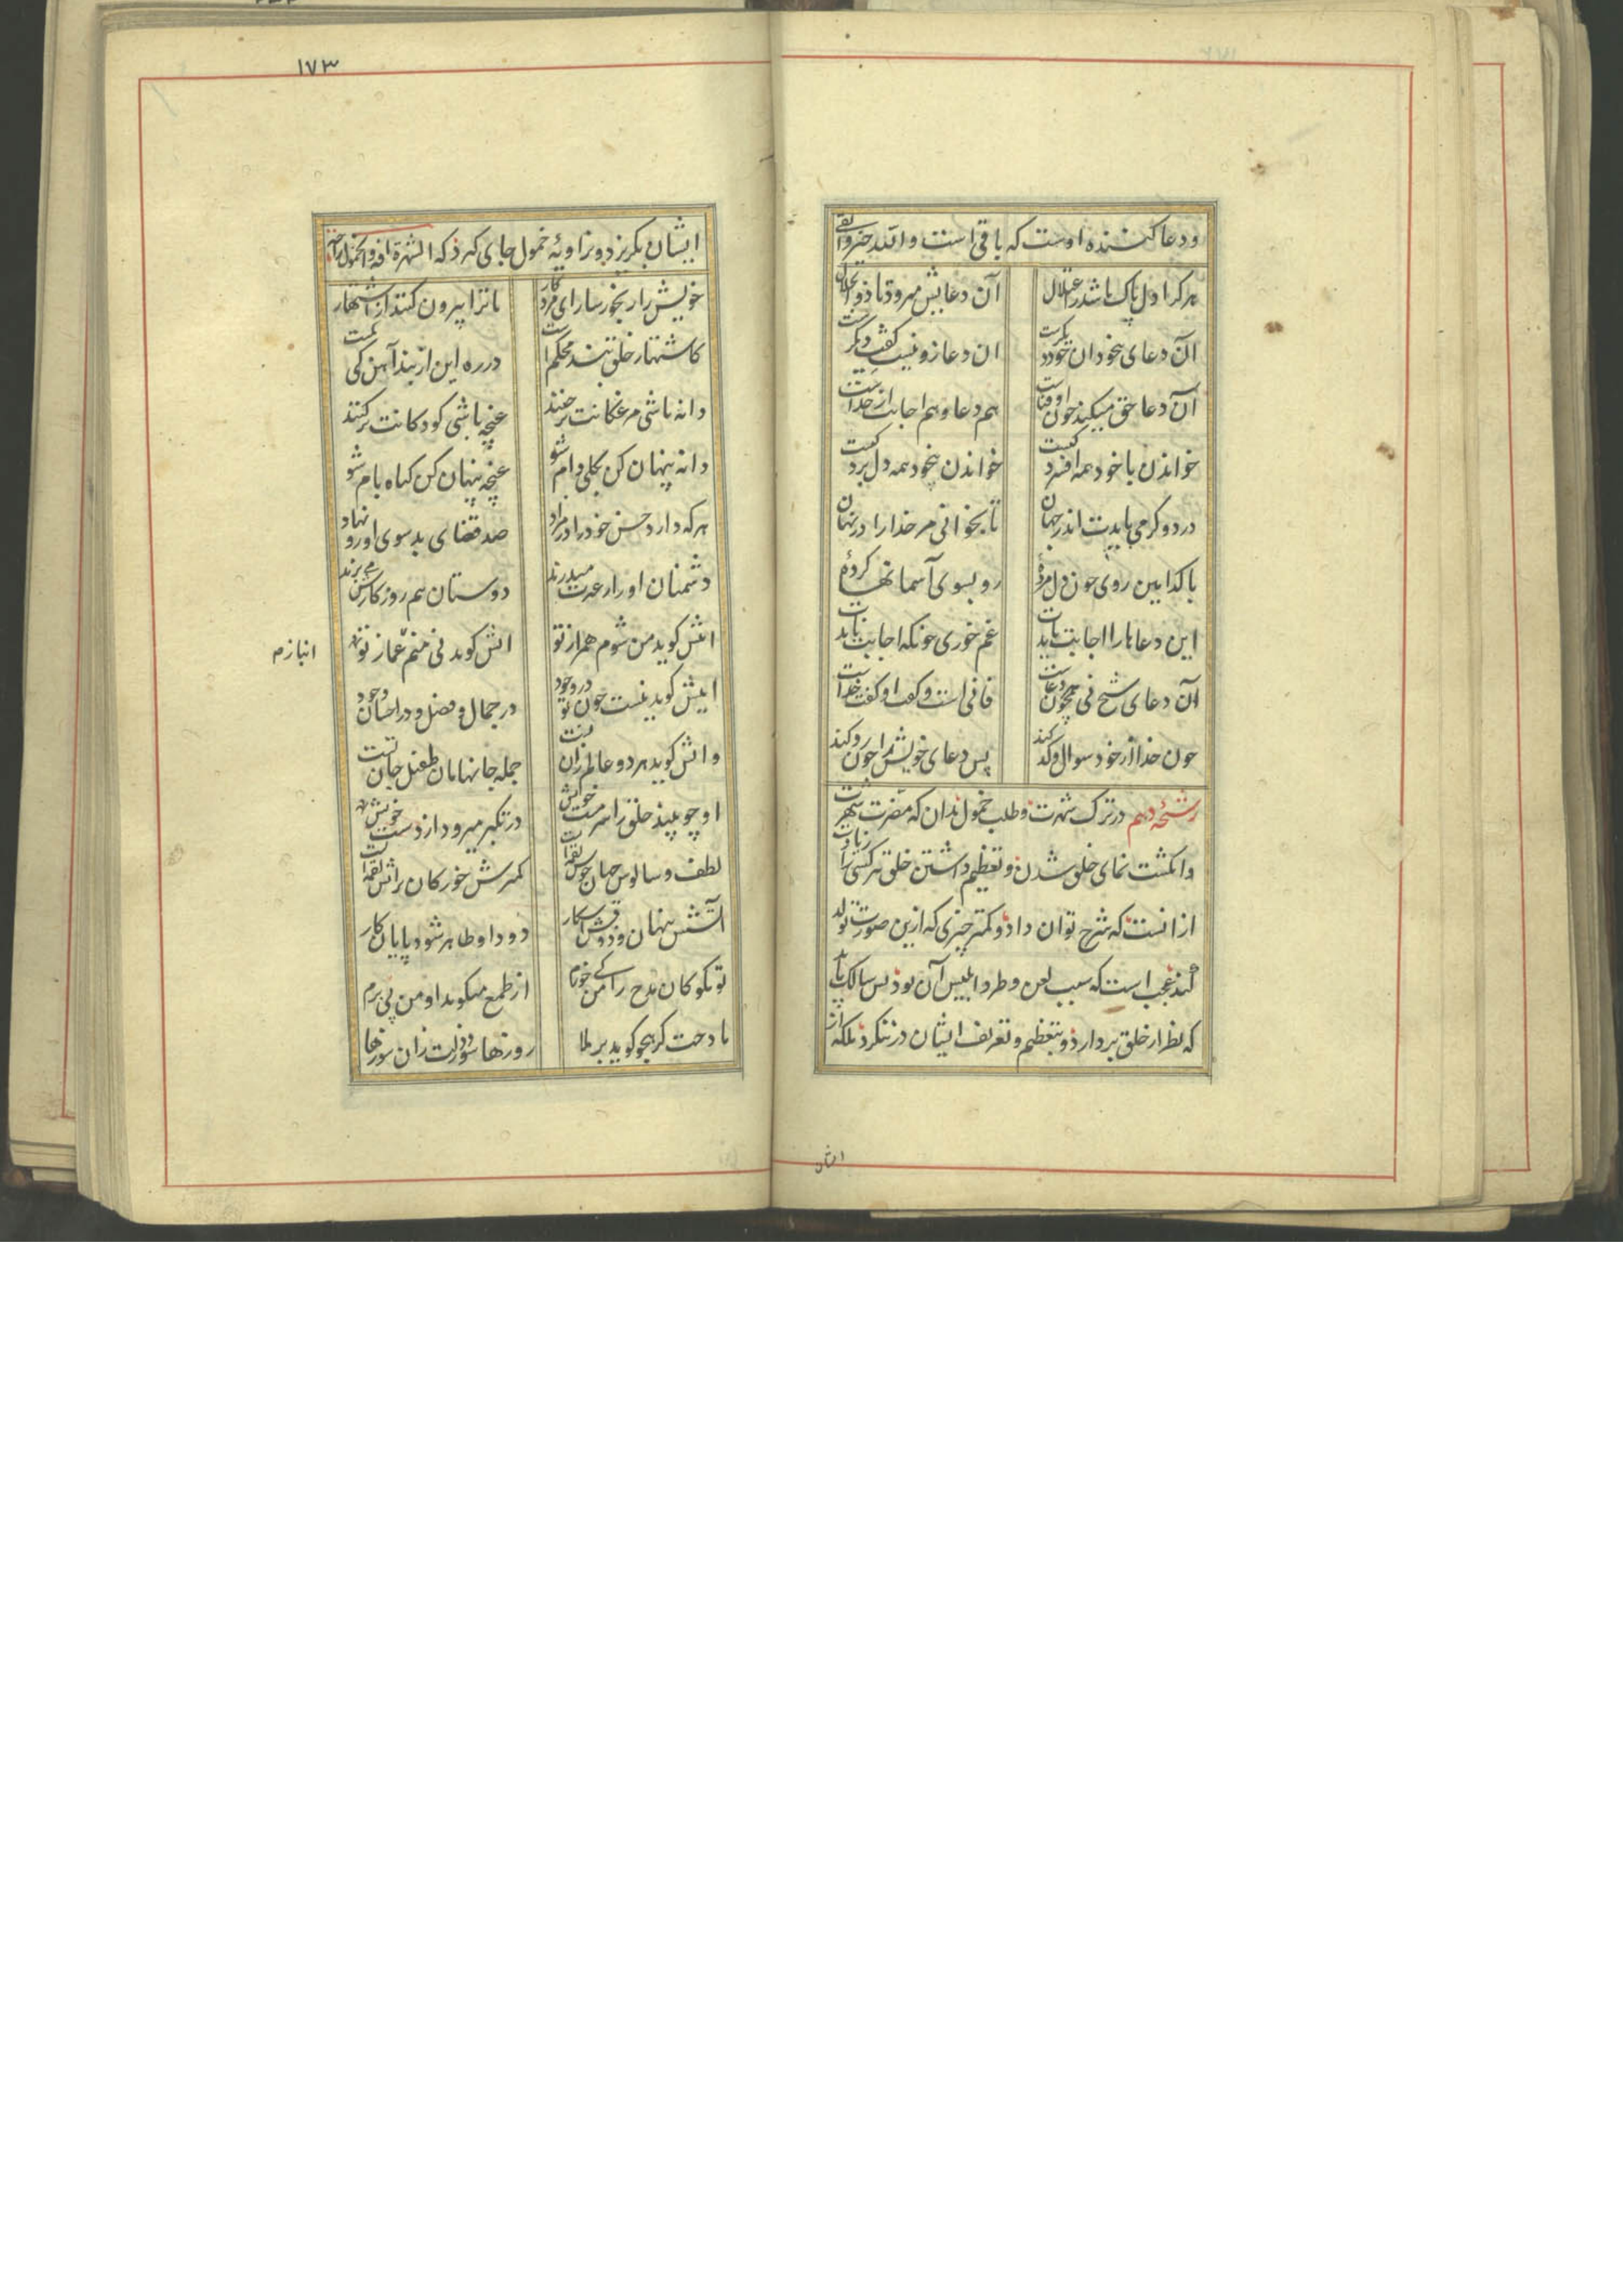 ودعا کننده اوست که باقی است والله خیر وابقی
هرکرا دل پاک باشد ز اعتلال آن دعایش میرود تا ذو الجلال
آن دعای بیخودان خود دیکرست ان دعا زو نیست کفت دیکرست
آن دعا حق میکند چون او فناست هم دعا و هم اجابت از خداست
خواندن با خود همه افسردکیست خواندن بیخود همه دل بردکیست
درد و کرمی بایدت اندر جهان تا بخوانی مر خدا را در نهان
با کدامین روی چون دل مردهٔ رو بسوی آسمانها کردهٔ
این دعاها را اجابت باید غم خوری چونکه اجابت ناید
آن دعای شیخ نی چون هر دعاست فانی است و کفت او کفت خداست
چون خدا از خود سوال و کد کند پس دعای خویش را چون رد کند
رشحهٔ دهم در ترک شهرت و طلب خمول بدان که مضرت شهرت
وانکشت نمای خلق شدن و تعظیم داشتن خلق هر کسی را زیادت
از انست که شرح توان داد و کمتر چیزی که ازین صورت تولد
کند عجب است که سبب لعن و طرد ابلیس آن بود پس سالک باید
که نظر از خلق بردارد و بتعظیم و تعریف ایشان در ننکرد بلکه از
ایشان
۱۷۳
ایشان بکریزد و بزاویهٔ خمول جای کیرد که الشهرة افة والخمول راحة
خویش را رنجور ساز ای مرد کار تا ترا بیرون کنند از اشتهار
کاشتهار خلق بند محکم است در ره این از بند آهن کی کمست
دانه باشی مرغکانت برچنند غنچه باشی کودکانت برکنند
دانه پنهان کن بکلی دام شو غنچه پنهان کن کیاه بام شو
هرکه دارد حسن خود را در مزاد صد قضای بد سوی او رو نهاد
دشمنان او را ز غیرت میدرند دوستان هم روزکارش می برند
انش کوید من شوم همراز تو انش کوید نی منم غماز تو
انبازم
اینش کوید نیست چون تو در وجود در جمال و فضل و در احسان وجود
وانش کوید هر دو عالم زان تست جمله جانهامان طفیل جان تست
او چو بیند خلق را سرمست خویش در تکبر میرود از دست خویش
لطف و سالوس جهان خوش لقمه ایست کمترش خور کان پر آتش لقمه ایست
آتشش پنهان و ذوقش آشکار دود او ظاهر شود پایان کار
تو مکو کان مدح را من کی خورم از طمع میکوید او من پی برم
مادحت کر هجو کوید برملا روزها سوزد دلت زان سوزها